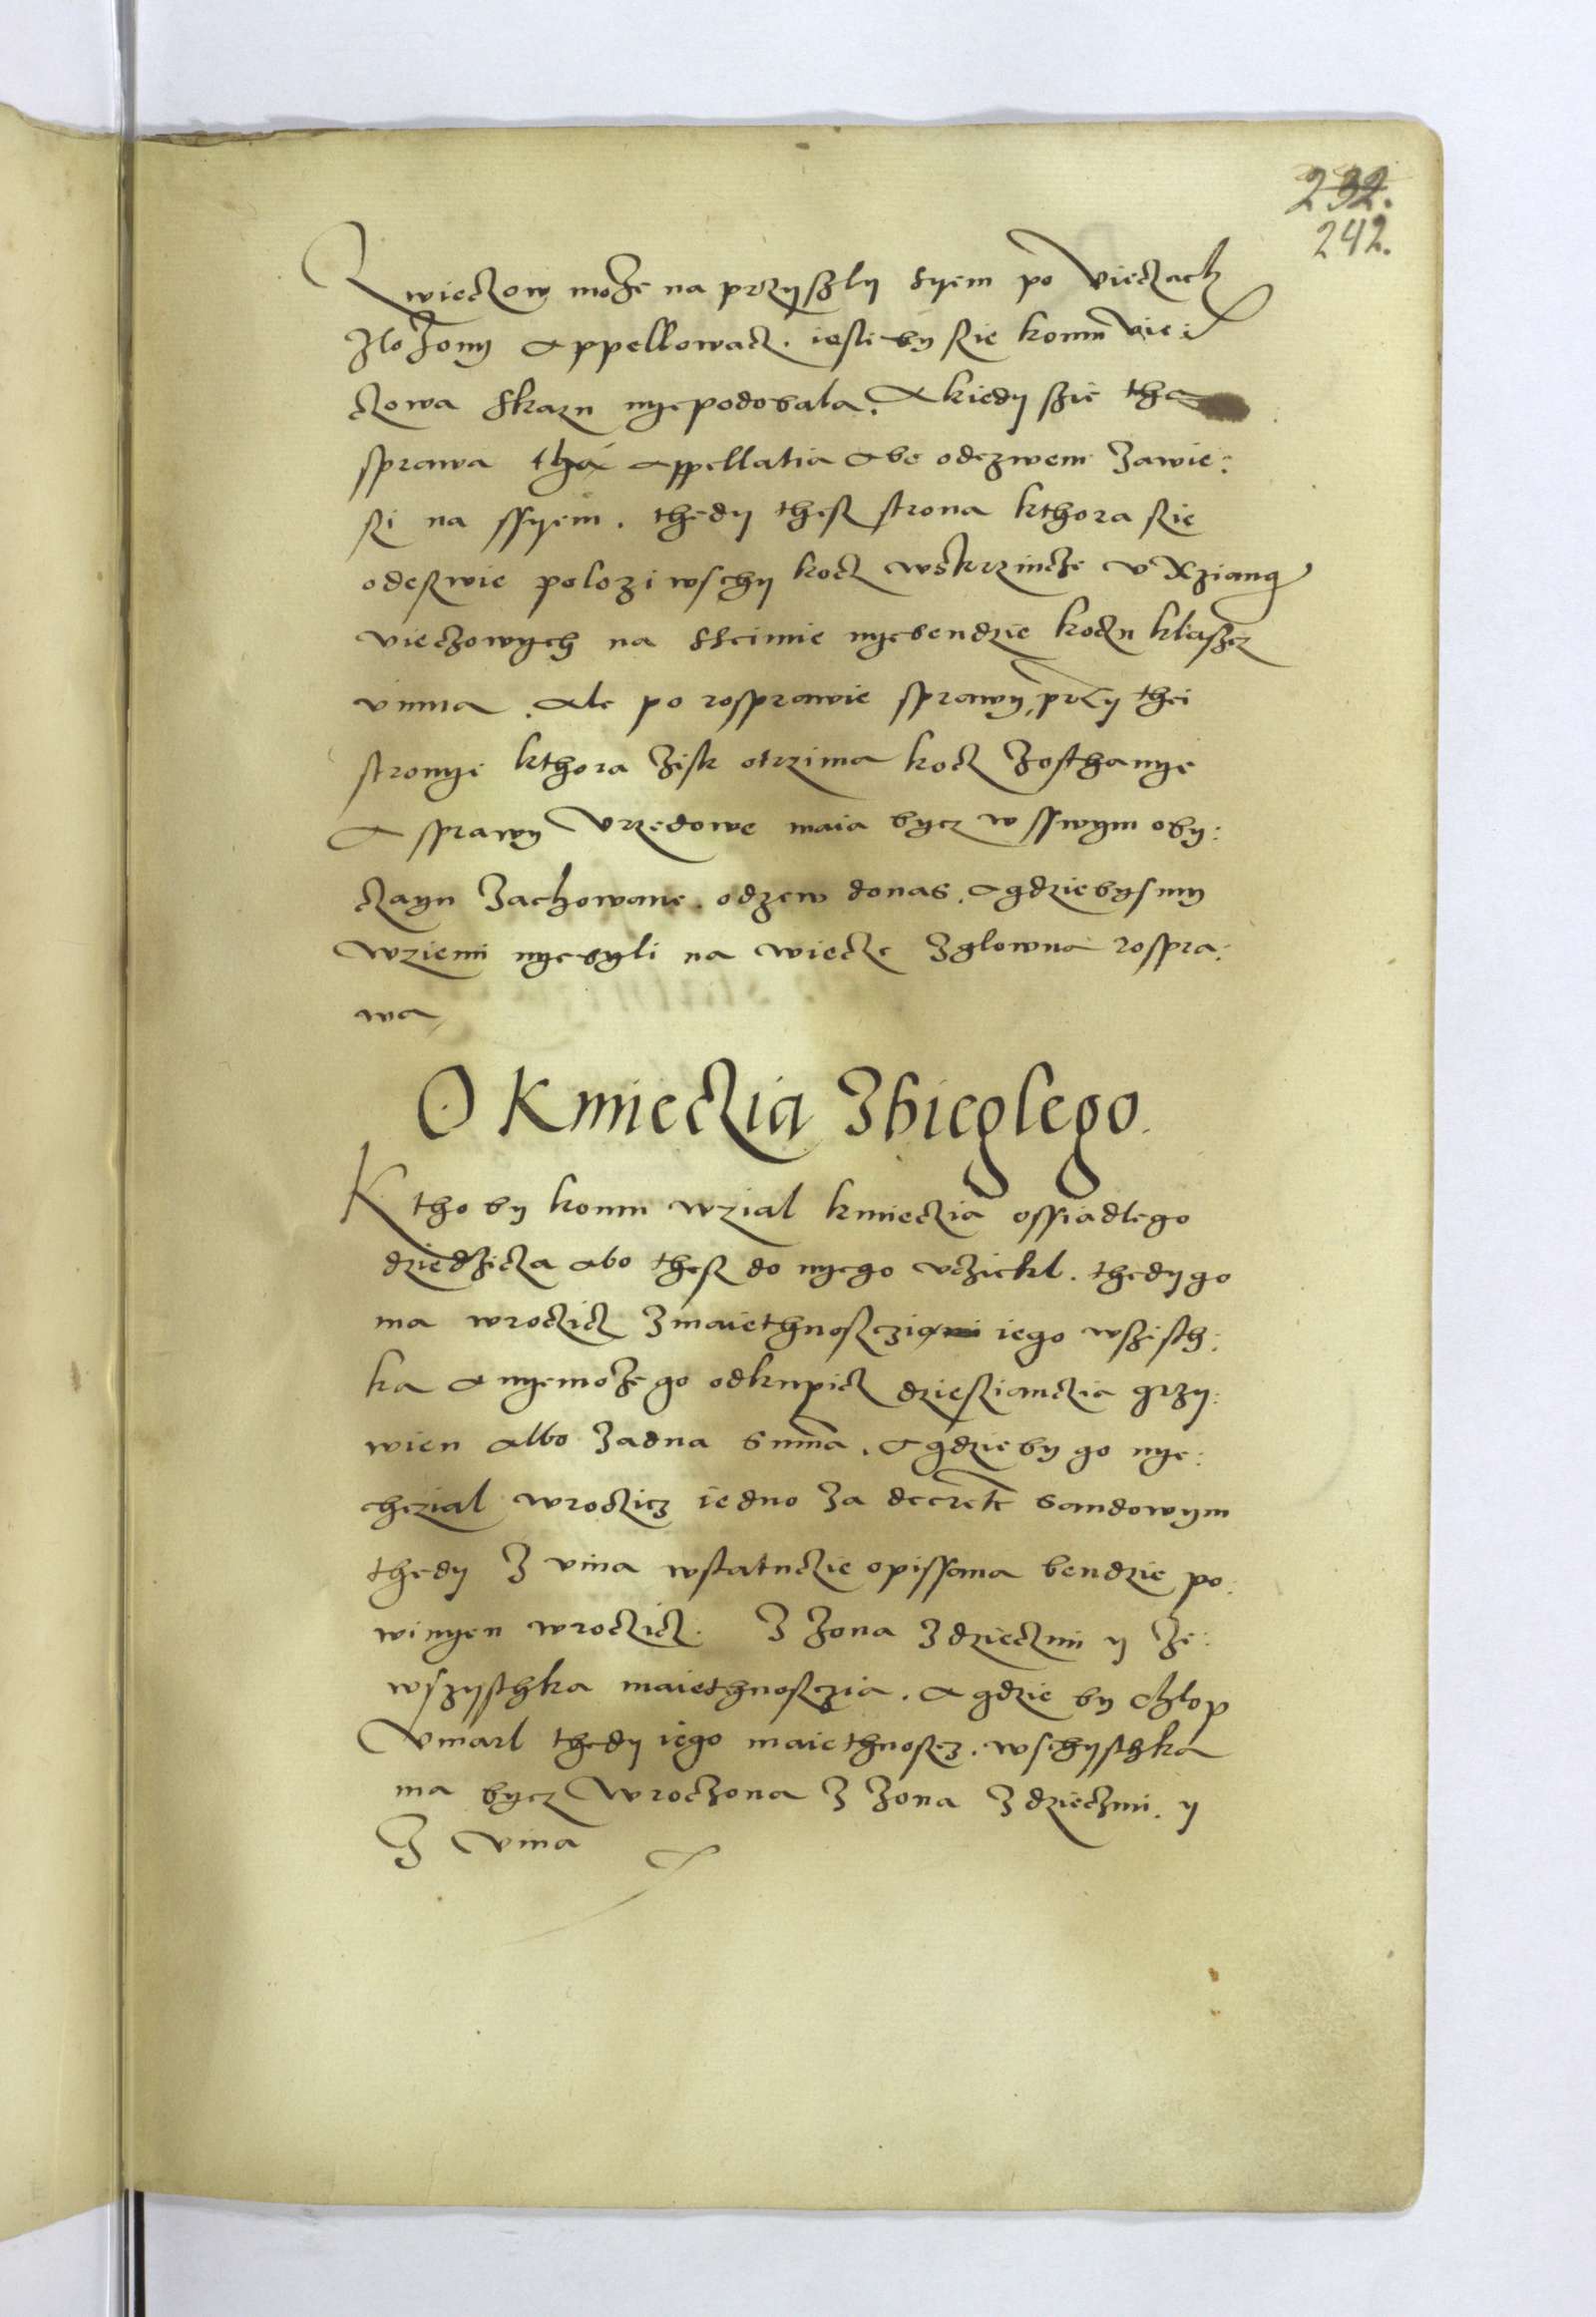 232.
242.
Z wieczow może na przyszly syem po Vieczach
zlożony appellowacz. iesli by sie komu vie:
czowa skazn nye podobala. A kiedy szie tha
sprawa thą appellatia abo odezwem zawie:
si na ssyem. thedy thesz strona kthora sie
odeswie polozi wschy kocz wskrzincze v Xziang
vieczowych na sseimie nye bendzie koczu klaszcz
vinna. Ale po rosprawie sprawy, przy thei
stronye kthora zisk otrzima kocz zosthanye
A sprawy Vrzedowe maia bycz w sswym oby:
czayu zachowane. odzew do nas. a gdziebysmy
wziemi nye byli na wiecze zglowna rospra:
wa
O Kmieczia Zbieglego.
Ktho by komu wzial kmieczia ossiadlego
dziedzicza abo thesz do nyego vcziekl. thedy go
ma wroczicz z maiethnosczia iego wszisth:
ka a nye može go odkupicz dziesianczia grzy:
wien albo zadna summa. A gdzie by go nye:
chczial wroczicz iedno za decretem sandowym
thedy z vina wstatuczie opissana bendzie po:
winyen wroczicz. Z zona z dzieczmi y ze:
wszysthka maiethnosczia. A gdzie by chlop
Vmarl thedy iego maiethnoscz. wschysthka
ma bycz wroczona z zona z dzieczmi. y
z vina